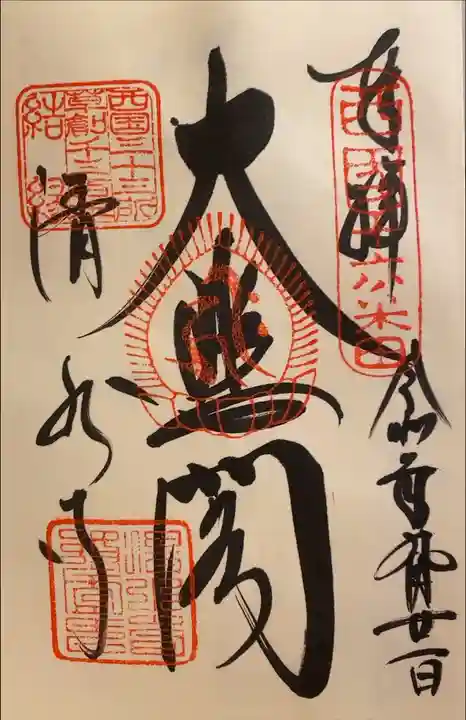 奉拝
西国十六番
令和元年
月廿一日
大悲閣
西国三十三所
草創千三百年
結縁
清水寺